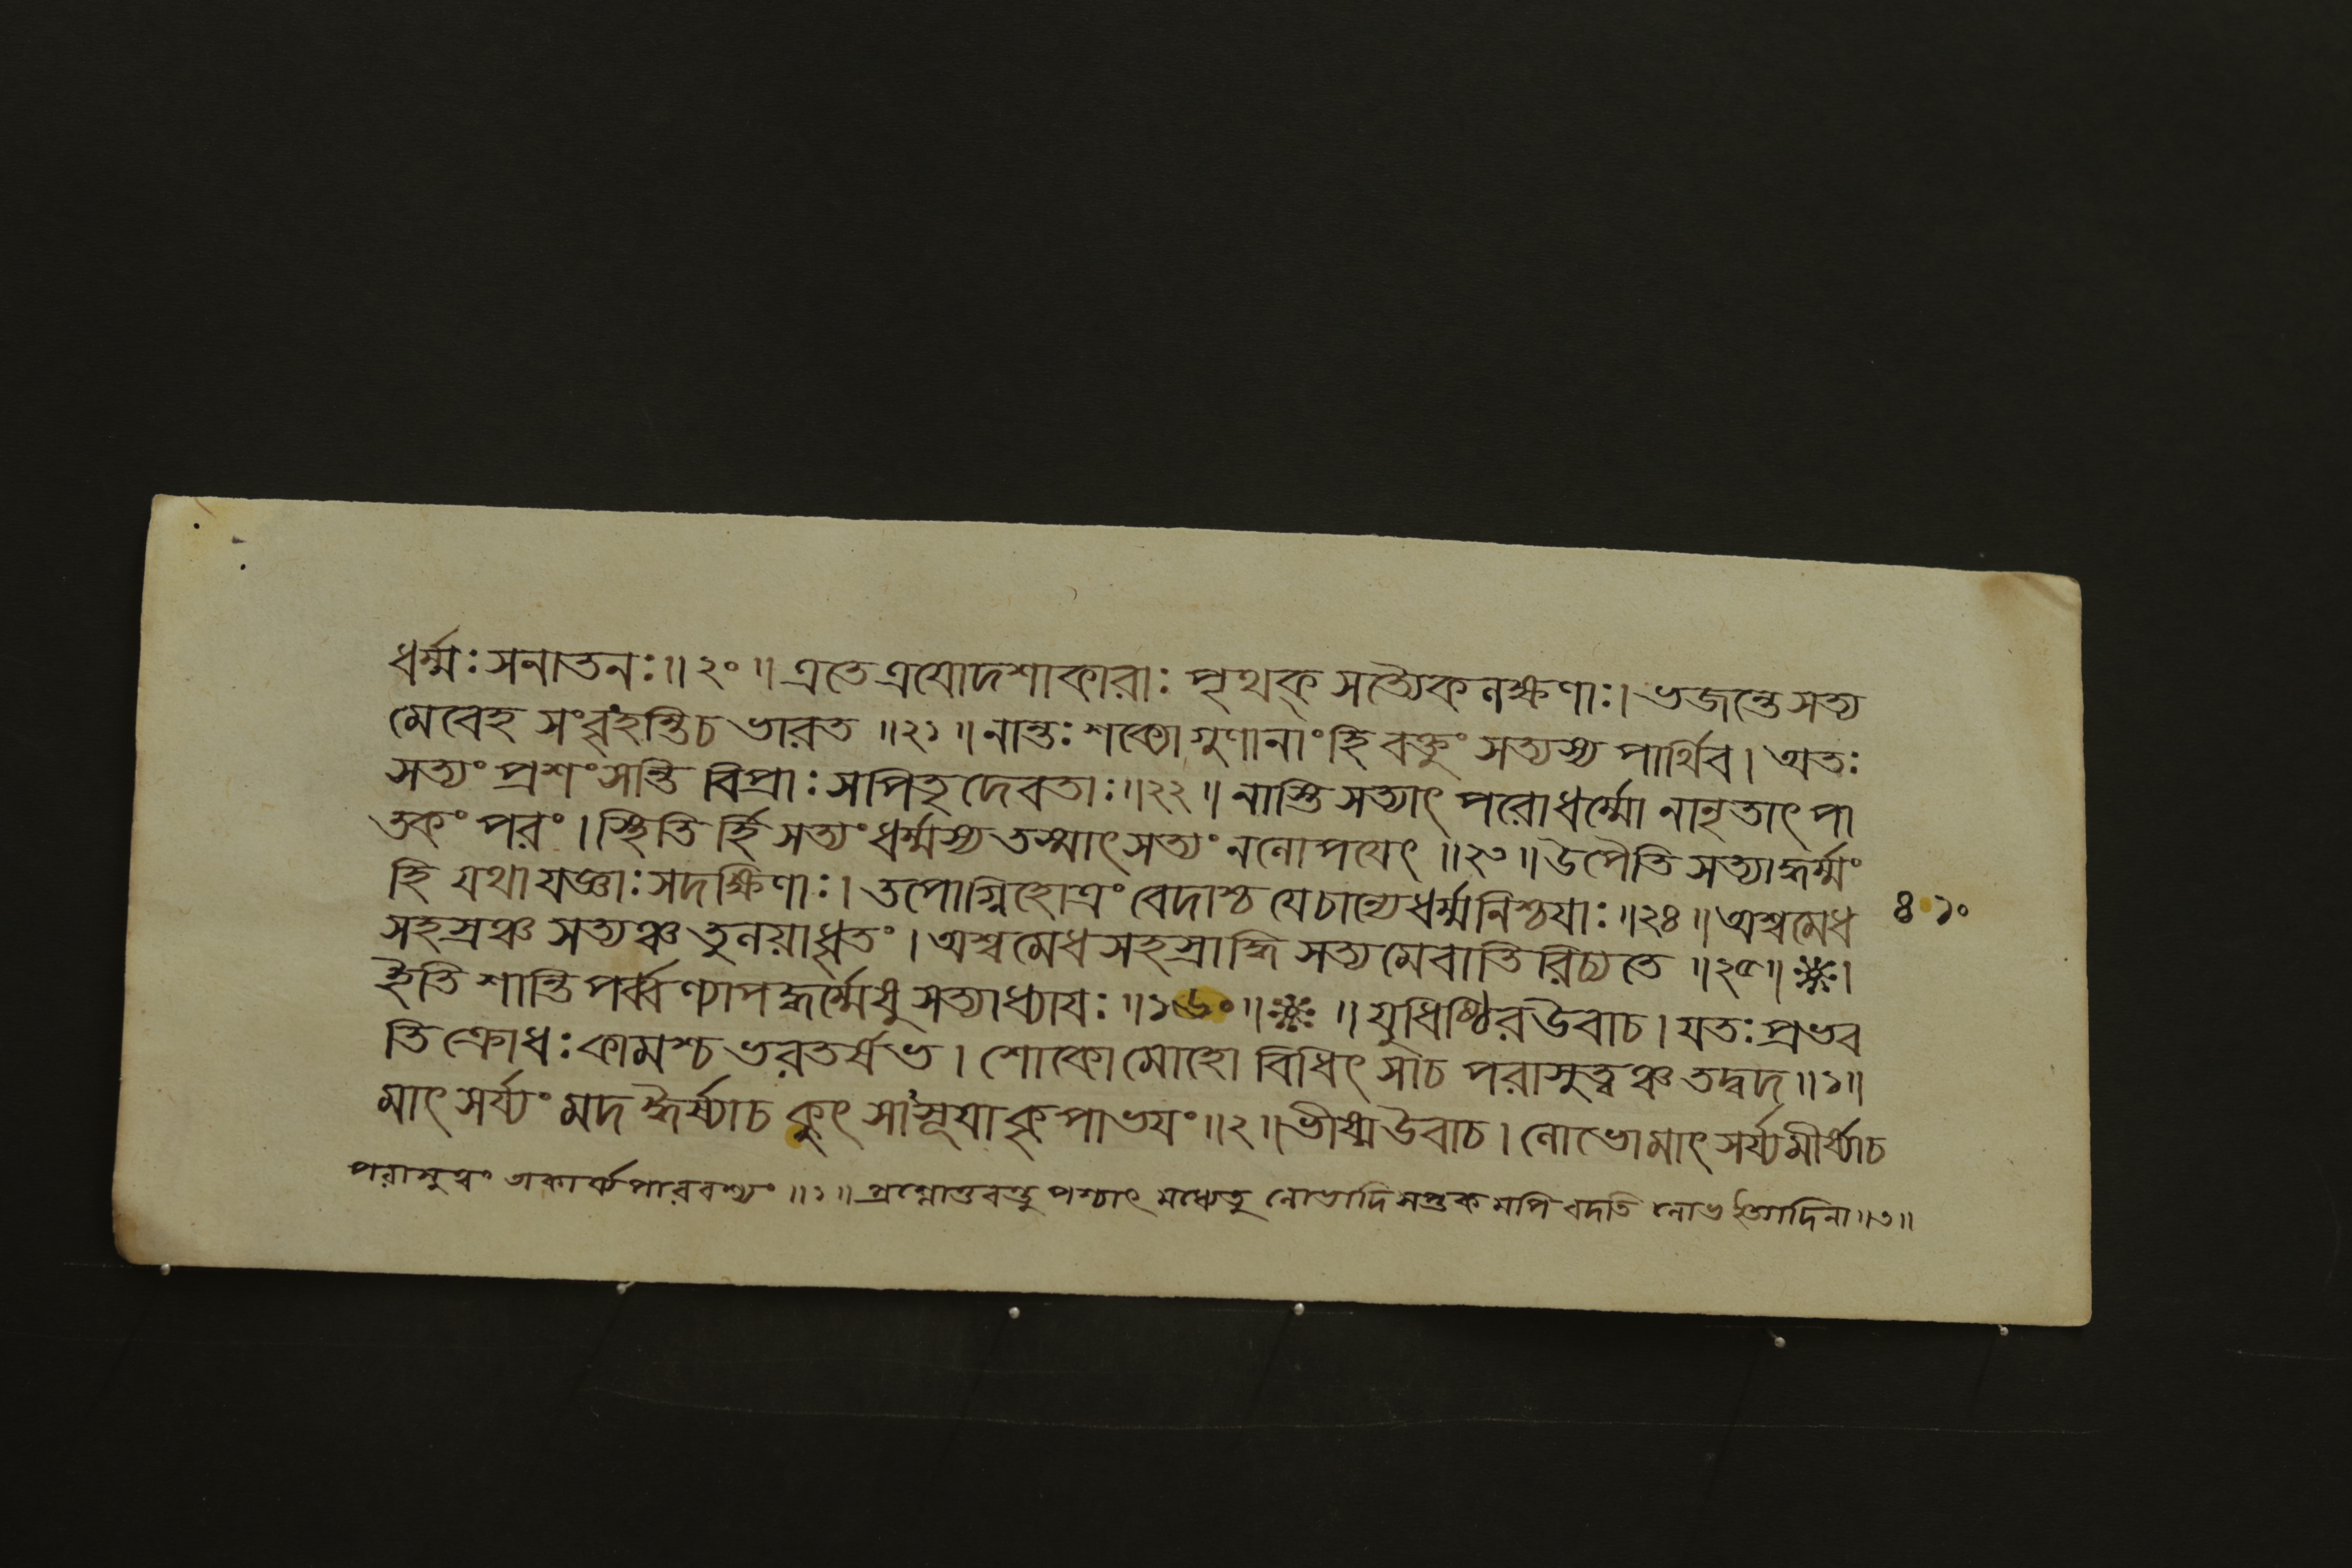 ধর্ম্মঃ সনাতনঃ॥২০॥ এতে ত্রযোদশাকারাঃ পৃথক্ সত্যৈকলক্ষণাঃ। ভজন্তে সত্য
মেবেহ সংবৃংহন্তি চ ভারত ॥২১॥ নান্তঃ শক্যো গুণানাং হি বক্তুং সত্যস্য পার্থিব। অতঃ
সত্যং প্রশংসন্তি বিপ্রাঃ সপিতৃদেবতাঃ॥২২॥ নাস্তি সত্যাৎ পরোধর্ম্মো নানৃতাৎ পা
তকং পরং। স্থিতি র্হি সত্যং ধর্ম্মস্য তস্মাৎ সত্যং নলোপযেৎ ॥২৩॥ উপৈতি সত্যাদ্ধর্ম্মং
হি যথা যজ্ঞাঃ সদক্ষিণাঃ। তপোগ্নিহোত্রং বেদাশ্চ যেচান্যেধর্ম্মনিশ্চযাঃ॥২৪॥ অশ্বমেধ
৪১০
সহস্রঞ্চ সত্যঞ্চ তুলয়াধৃতং। অশ্বমেধ সহস্রাদ্ধি সত্যমেবাতিরিচ্যতে ॥২৫॥ ❊।
ইতি শান্তিপর্ব্বণ্যাপদ্ধর্ম্মেষু সত্যাধ্যাযঃ ॥১৬০॥❊॥ যুধিষ্ঠির উবাচ। যতঃ প্রভব
তি ক্রোধঃ কামশ্চ ভরতর্ষভ। শোকো মোহো বিধিৎসাচ পরাসুত্বঞ্চ তদ্বদ॥১॥
মাৎসর্য্যং মদ ঈর্ষ্যাচ কুৎসাসূযা কৃপাভযং॥২॥ ভীষ্মউবাচ। লোভোমাৎসর্য্যমীর্ষ্যাচ
পরাসুত্বং অকার্য্য পারবশ্যং ॥১॥ প্রশ্নোত্তরবস্তু পশ্চাৎ মধ্যেতু লোভাদি সপ্তক মপি বদতি লোভ ইত্যাদিনা॥৩॥